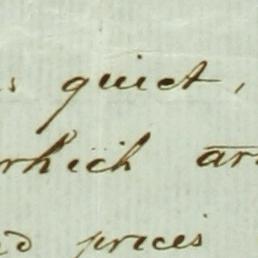 s quiet,
which ar
ed prices